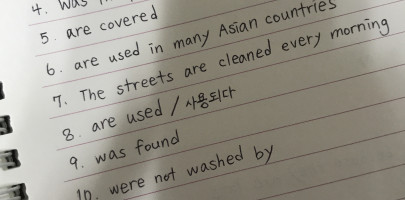 4. was
5. are covered
6. are used in many Asian countries
7. The streets are cleaned every morning
8. are used / 사용되다
9. was found
10. were not washed by